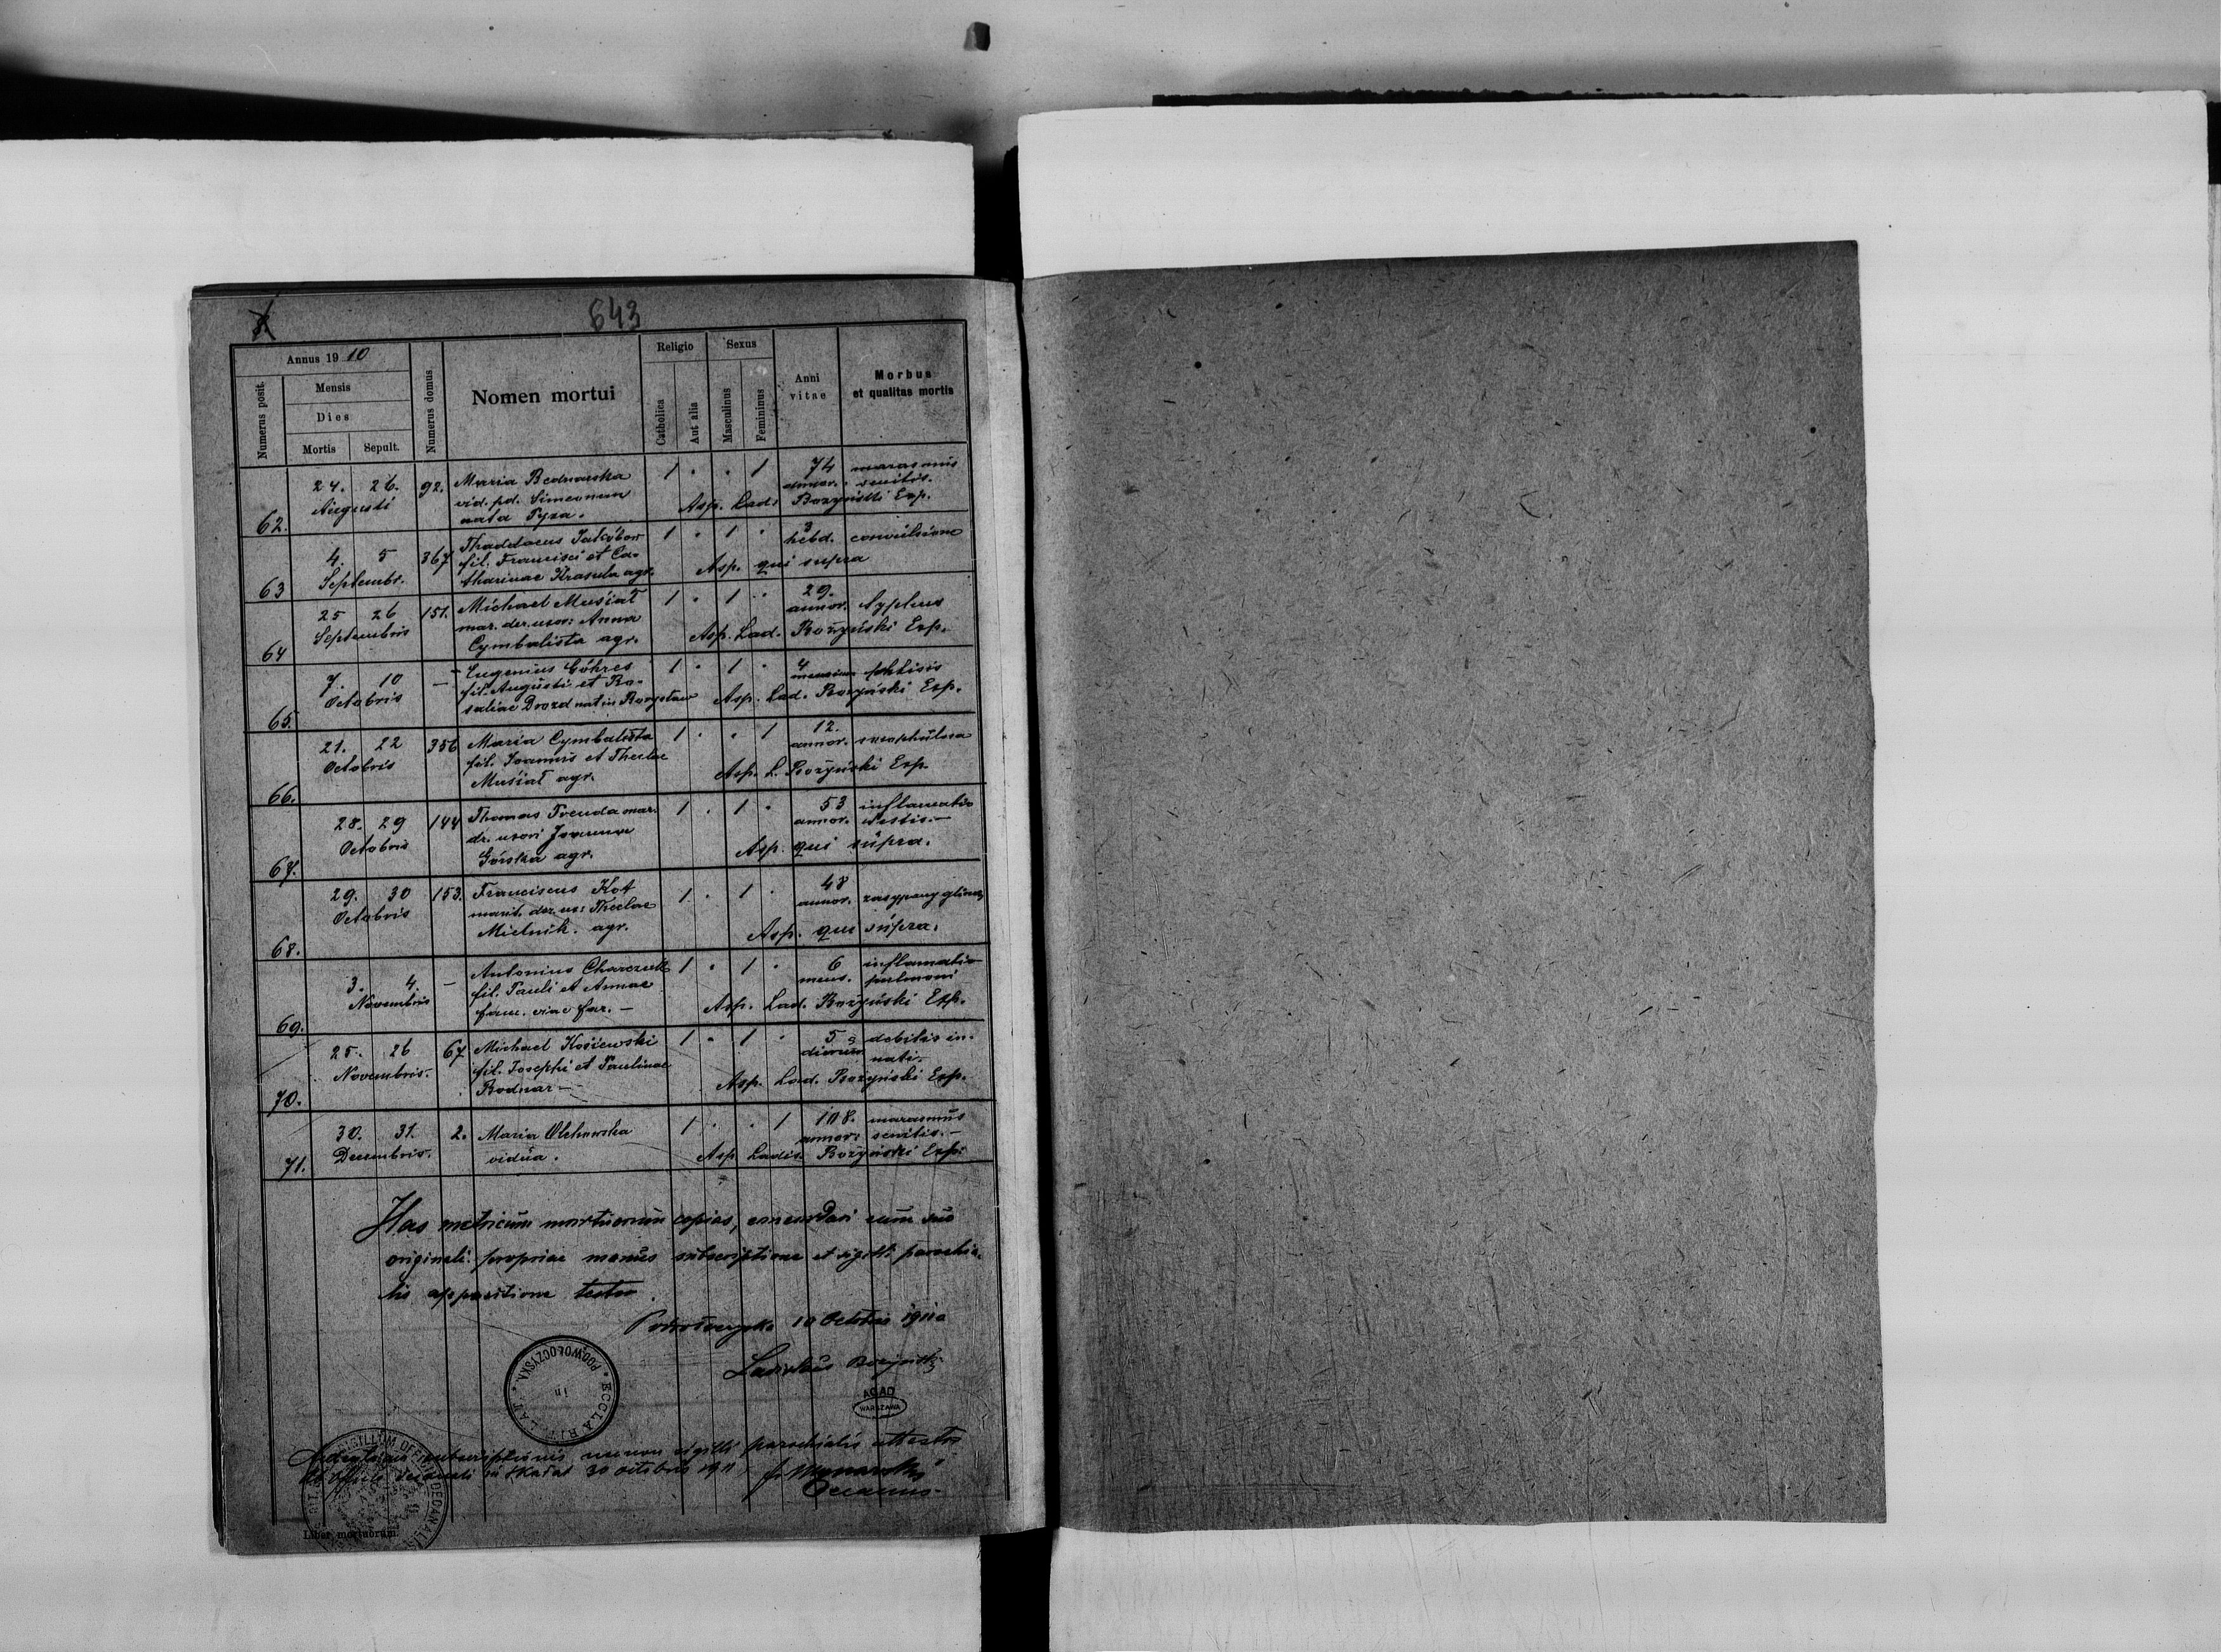 643
Annus 1910
Numerus posit.
Mensis
Dies
Mortis
Sepult.
Numerus domus
Nomen mortui
Religio
Catholica
Aut alia
Sexus
Masculinus
Femininus
Anni vitae
Morbus et qualitas mortis
62. 24. 26. 92. Maria Bednarska 1 . . 1 74 marasmus
Augusti vid. pd. Simeonem annor. senilis.
nata Pyza. Asp. Lad. Bożyński Exp.
63 4. 5 367 Thaddaeus Jakóbow 1 . 1 . 3 hebd. convulsione
Septembr. fil. Francisci et Ca-
tharinae Krasula agr. Asp. qui supra
64 25 26 151. Michael Musiał 1 . 1 . 29. annor. typhus
Septembris mar. der. uxor: Anna
Cymbalista agr. Asp. Lad. Bożyński Exp.
65. 7. 10 — Eugenius Göhres 1 . 1 . 4 mensium phtisis
Octobris fil. Augusti et Ro-
saliae Drozd nat in Borysław Asp. Lad. Bożyński Exp.
66. 21. 22 356 Maria Cymbalista 1 . . 1 12. annor. scrophulosa
Octobris fil. Joannis et Theclae
Musiał agr. Asp. L. Bożyński Exp.
67. 28. 29 144 Thomas Freuda mar. 1 . 1 . 53 inflamatio
Octobris dr. uxori annor.
Górska agr. Asp. qui supra.
68. 29. 30 153. Franciscus Kot 1 . 1 . 48 annor. zasypany gliną
Octobris marit. der. ux: Theclae
Mielnik. agr. Asp. qui supra.
69. 3. 4. — Antonius Charczuk 1 . 1 . 6 inflamatio
Novembris fil. Pauli et Annae mens. pulmoni
fam. viae fer. — Asp. Lad. Bożyński Exp.
70. 25. 26 67 Michael Kosiewski 1 . 1 . 5 debilis in-
Novembris. fil. Josephi et Paulinae dierum nati.
Bodnar — Asp. Lad. Bożyński Exp.
71. 30. 31. 2. Maria Olchowska 1 . . 1 108. marasmus
Decembris. vidua. annor: senilis. —
Asp. Ladis. Bożyński Exp.
Has metricum mortuorum copias, concordari cum suo
originali propriae manus subscriptione et sigilli parochia-
lis appositione testor.
Podwołoczyska 10 Octobris 1911
Ladislaus Bożyński
ECCLA RIT. LAT. in PODWOŁOCZYSKA
AGAD
WARSZAWA
subscriptionis sigilli parochialis attestor
in Skałat 30 octobris 1911
Decanus
SIGILLUM OFFICII DECANALIS RIT.
Liber mortuorum.